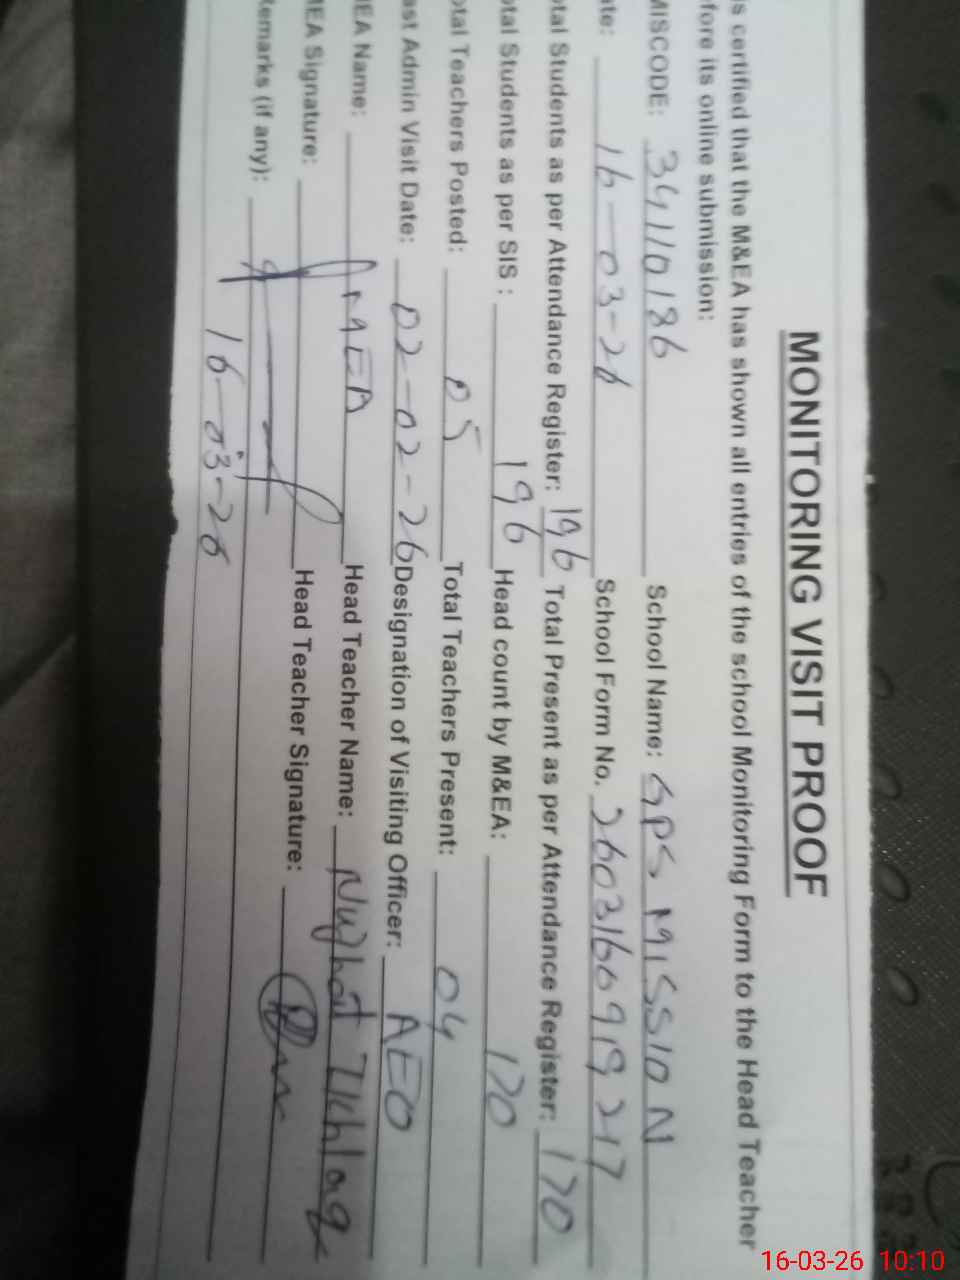 MONITORING VISIT PROOF
s certified that the M&EA has shown all entries of the school Monitoring Form to the Head Teacher
fore its online submission:
MISCODE: 34110186 School Name: GPS MISSION
ate: 16-03-26 School Form No. 2603160919217
otal Students as per Attendance Register: 196 Total Present as per Attendance Register: 170
otal Students as per SIS: 196 Head count by M&EA: 170
otal Teachers Posted: 05 Total Teachers Present: 04
ast Admin Visit Date: 02-02-26 Designation of Visiting Officer: AEO
EA Name: Head Teacher Name: Nujhat
EA Signature: Head Teacher Signature:
Remarks (if any):
16-03-26
16-03-26 10:10